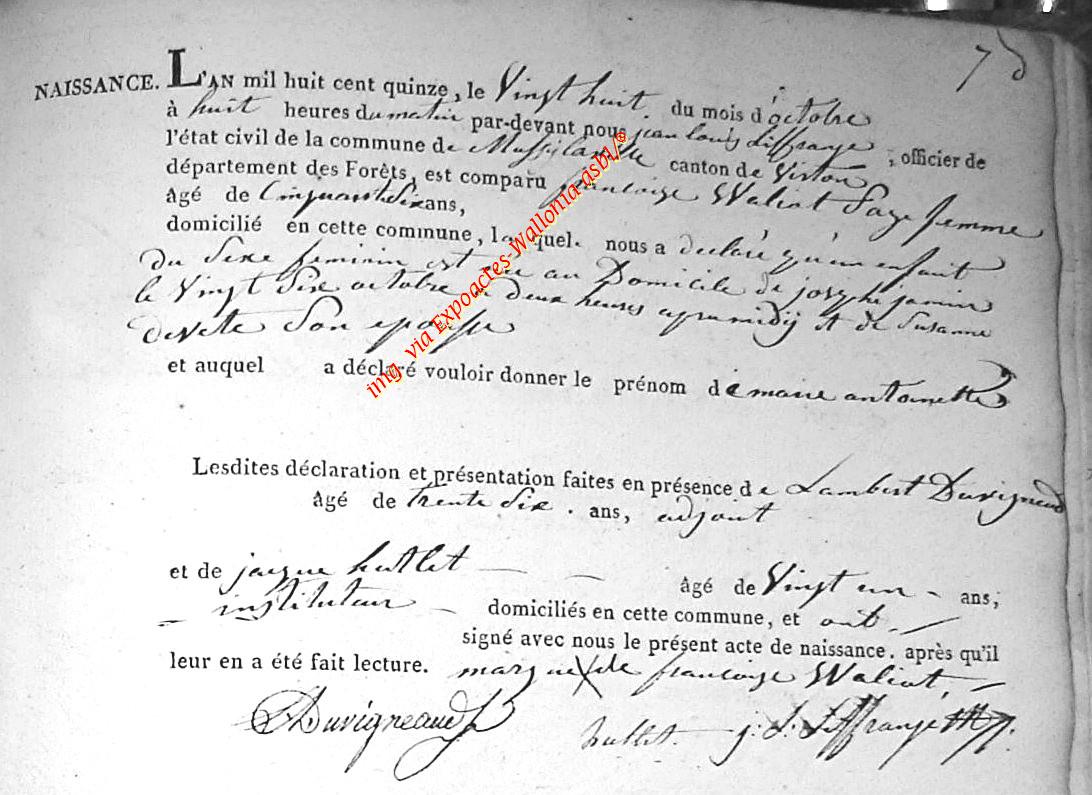 7
NAISSANCE. L'AN mil huit cent quinze, le Vingt huit du mois d'octobre
à huit heures du matin par-devant nous jean louis Liffrange, officier de
l'état civil de la commune de Mussy canton de Virton
département des Forêts, est comparu francoise Waliot Sage femme
âgé de Cinquante Six ans,
domicilié en cette commune, laquel. nous a declaré qu'un enfant
du Sexe feminin est né au Domicile de josephe jamin
le Vingt Six octobre a deux heures apremidij et de Susanne
Son epouse
et auquel a déclaré vouloir donner le prénom de marie antoinette
Lesdites déclaration et présentation faites en présence de Lambert Duvigneaud
âgé de trente Six. ans, adjoint
et de jacque hullet âgé de Vingt un ans,
instituteur domiciliés en cette commune, et ont
signé avec nous le présent acte de naissance. après qu'il
leur en a été fait lecture. marque X de francoise Waliot,
Duvigneaud
hullet. j. L. Liffrange
img via Expoactes-Wallonia-asbl/©